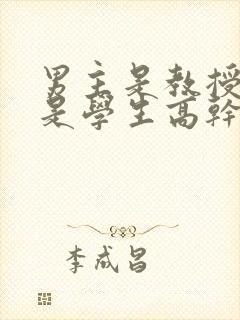 男主是教授
是學生高幹
李成昌